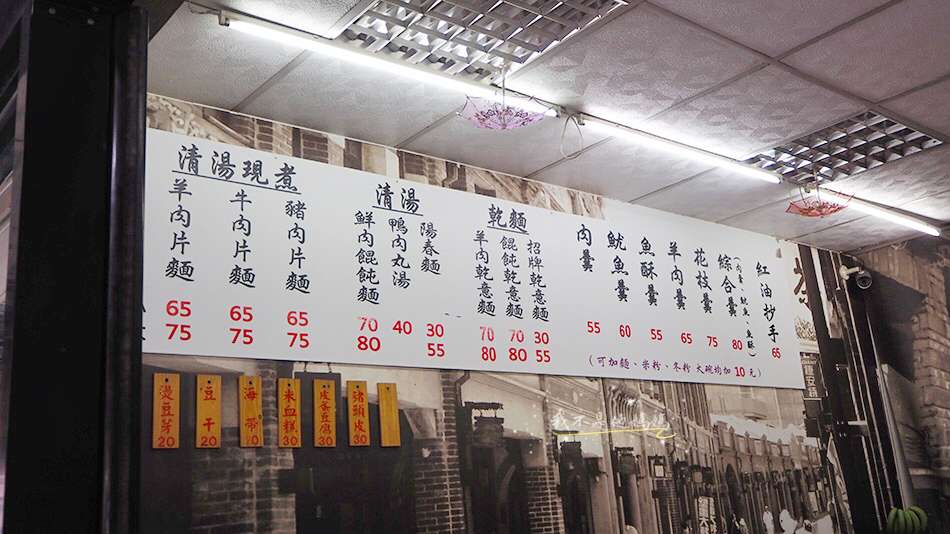 紅油抄手 65
綜合羹 (肉羹、魷魚、魚酥) 80
花枝羹 75
羊肉羹 65
魚酥羹 55
魷魚羹 60
肉羹 55
(可加麵、米粉、冬粉 大碗均加 10 元)
乾麵
招牌乾意麵 30 55
餛飩乾意麵 70 80
羊肉乾意麵 70 80
清湯
陽春麵 30 55
鴨肉丸湯 40
鮮肉餛飩麵 70 80
清湯現煮
豬肉片麵 65 75
牛肉片麵 65 75
羊肉片麵 65 75
燙豆芽 20
豆干 20
海帶 20
米血糕 30
皮蛋豆腐 30
豬頭皮 30